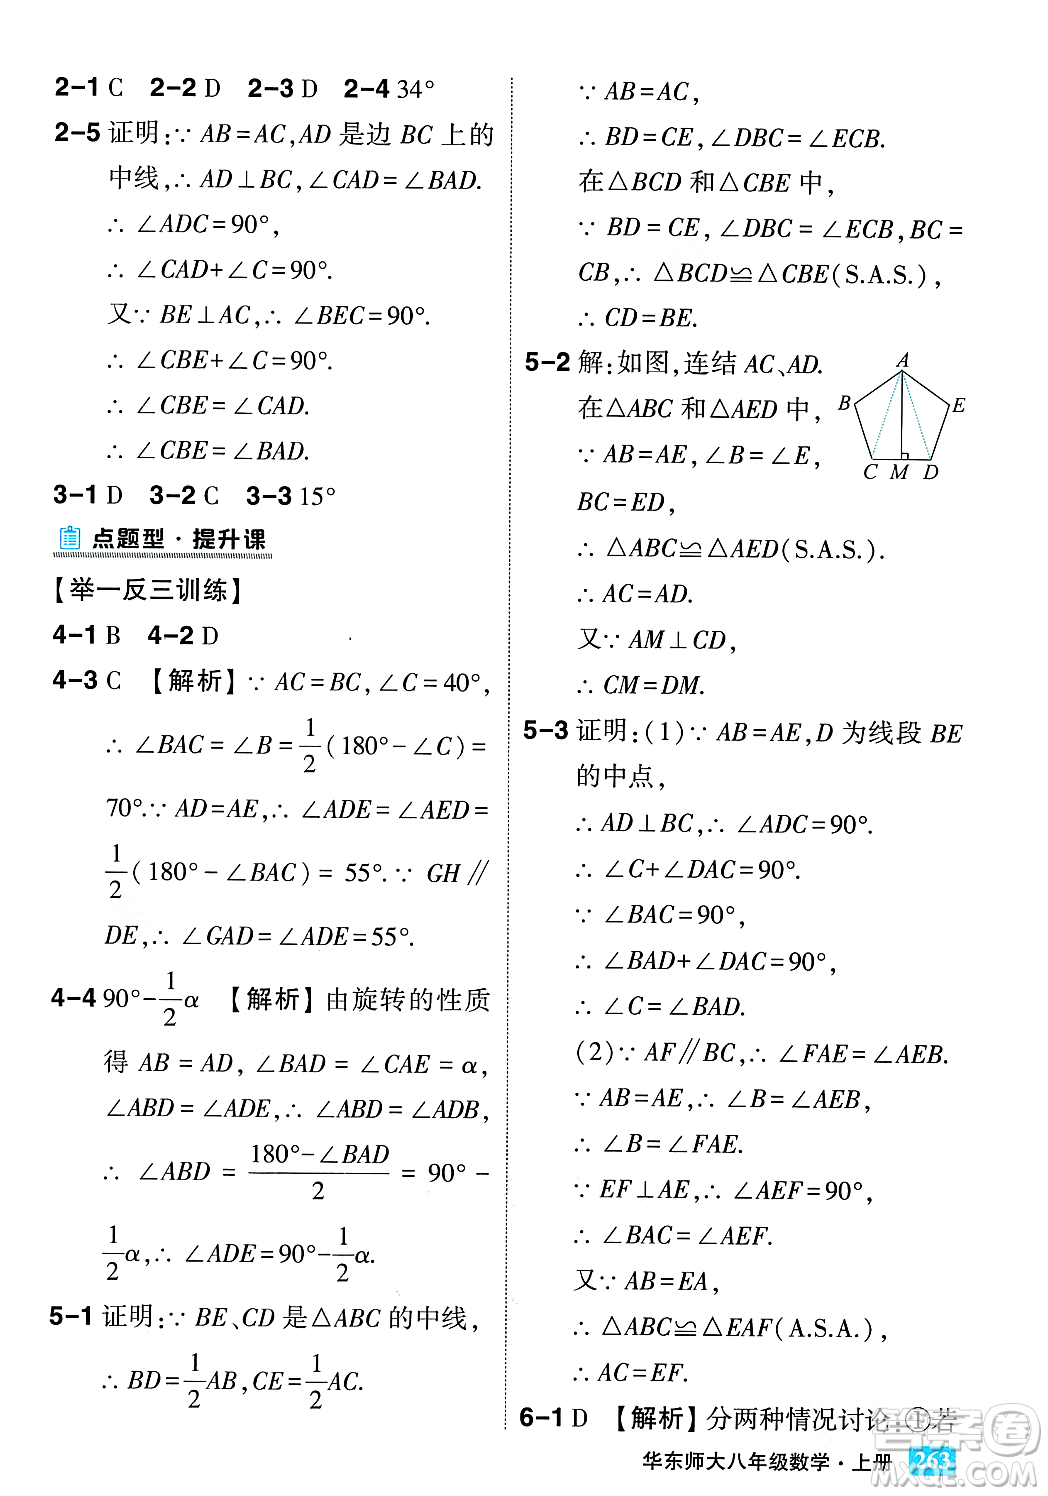 2-1 C 2-2 D 2-3 D 2-4 34°
2-5 证明:∵ AB=AC,AD 是边 BC 上的
中线,∴ AD⊥BC,∠CAD=∠BAD.
∴ ∠ADC=90°,
∴ ∠CAD+∠C=90°.
又∵ BE⊥AC,∴ ∠BEC=90°.
∴ ∠CBE+∠C=90°.
∴ ∠CBE=∠CAD.
∴ ∠CBE=∠BAD.
3-1 D 3-2 C 3-3 15°
点题型·提升课
【举一反三训练】
4-1 B 4-2 D
4-3 C 【解析】∵ AC=BC,∠C=40°,
∴ ∠BAC=∠B=1/2(180°-∠C)=
70°.∵ AD=AE,∴ ∠ADE=∠AED=
1/2(180°-∠BAC)=55°.∵ GH∥
DE,∴ ∠GAD=∠ADE=55°.
4-4 90°-1/2α 【解析】由旋转的性质
得 AB=AD,∠BAD=∠CAE=α,
∠ABD=∠ADE,∴ ∠ABD=∠ADB,
∴ ∠ABD=(180°-∠BAD)/2=90°-
1/2α,∴ ∠ADE=90°-1/2α.
5-1 证明:∵ BE、CD 是△ABC 的中线,
∴ BD=1/2AB,CE=1/2AC.
∵ AB=AC,
∴ BD=CE,∠DBC=∠ECB.
在△BCD 和△CBE 中,
∵ BD=CE,∠DBC=∠ECB,BC=
CB,∴ △BCD≌△CBE(S.A.S.),
∴ CD=BE.
5-2 解:如图,连结 AC、AD.
在△ABC 和△AED 中,
∵ AB=AE,∠B=∠E,
BC=ED,
∴ △ABC≌△AED(S.A.S.).
∴ AC=AD.
又∵ AM⊥CD,
∴ CM=DM.
A
B
E
C M D
5-3 证明:(1)∵ AB=AE,D 为线段 BE
的中点,
∴ AD⊥BC,∴ ∠ADC=90°.
∴ ∠C+∠DAC=90°.
∵ ∠BAC=90°,
∴ ∠BAD+∠DAC=90°,
∴ ∠C=∠BAD.
(2)∵ AF∥BC,∴ ∠FAE=∠AEB.
∵ AB=AE,∴ ∠B=∠AEB,
∴ ∠B=∠FAE.
∵ EF⊥AE,∴ ∠AEF=90°,
∴ ∠BAC=∠AEF.
又∵ AB=EA,
∴ △ABC≌△EAF(A.S.A.),
∴ AC=EF.
6-1 D 【解析】分两种情况讨论:①若
华东师大八年级数学·上册 263
答案圈
MXQE.COM